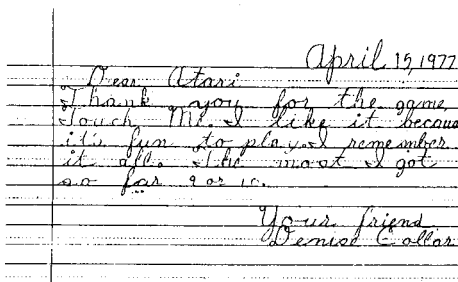 April 15, 1977
Dear Atari
Thank you for the game,
Touch Me. I like it becaus
it's fun to play. I remember
it all. The most I got
so far 9 or 10.
Your friend
Denise Collar